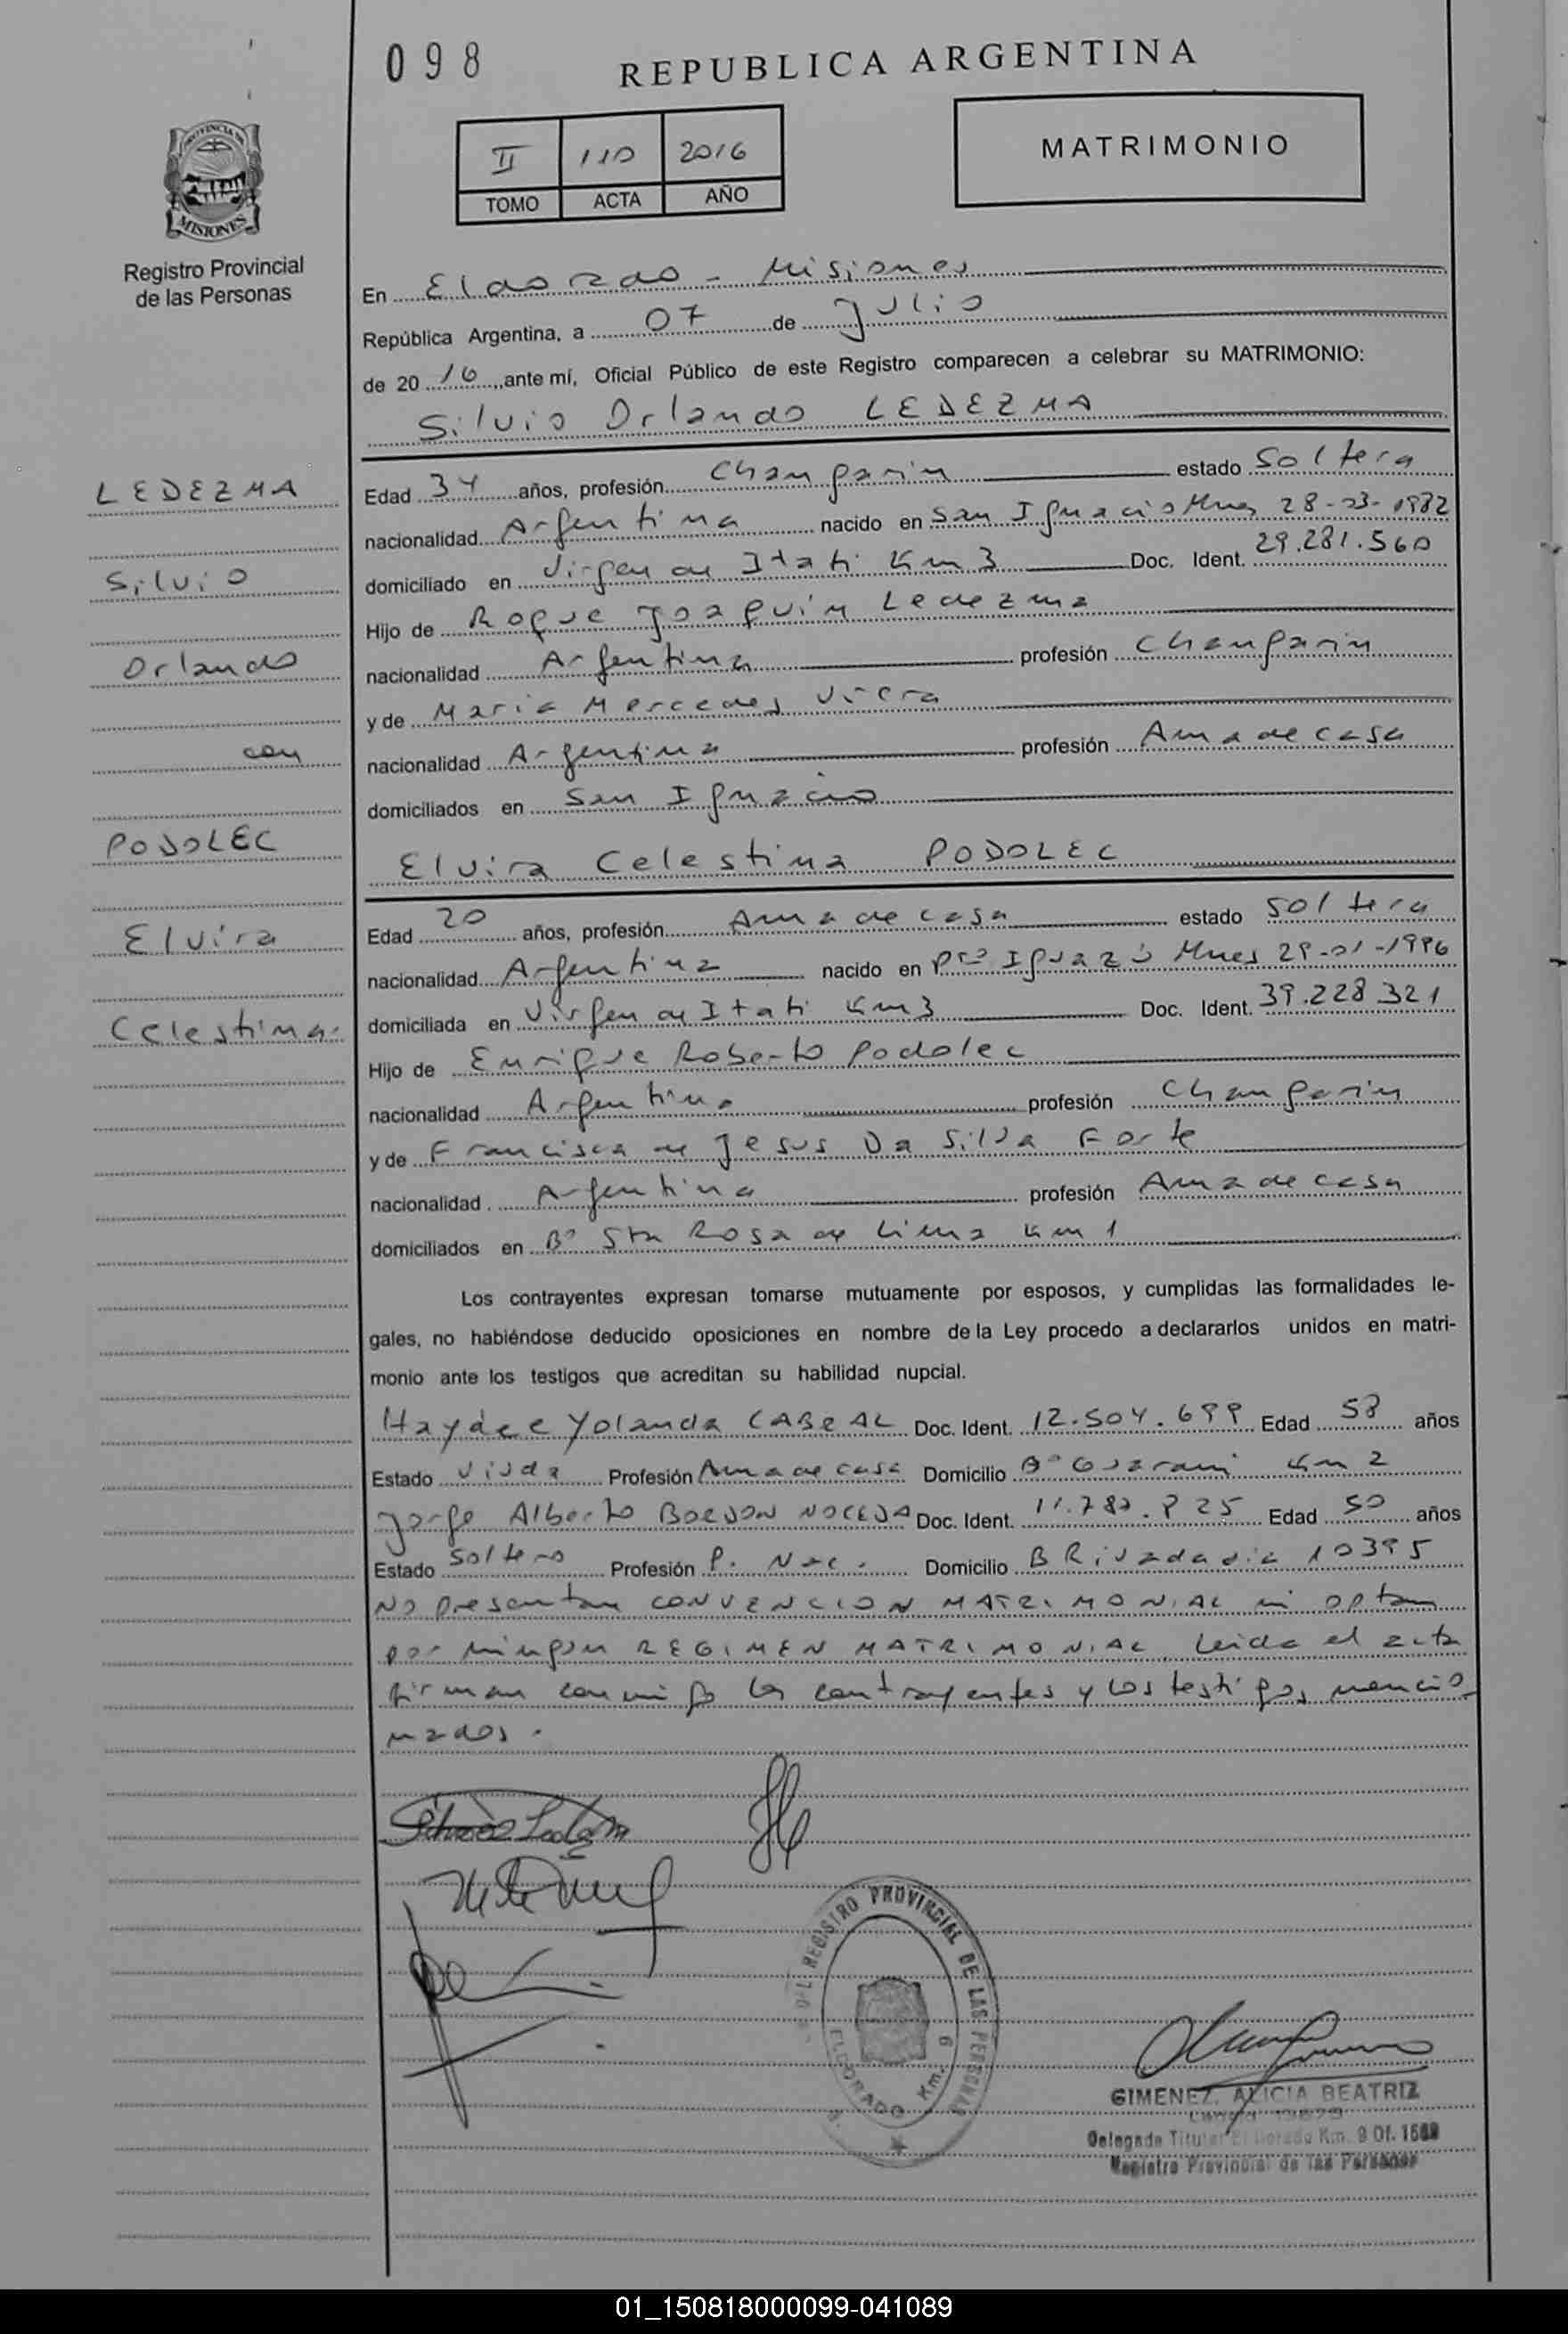 098
REPUBLICA ARGENTINA
II 110 2016
TOMO ACTA AÑO
MATRIMONIO
PROVINCIA DE
MISIONES
Registro Provincial
de las Personas
En Eldorado - Misiones
República Argentina, a 07 de Julio
de 20 16, ante mí, Oficial Público de este Registro comparecen a celebrar su MATRIMONIO:
Silvio Orlando LEDEZMA
LEDEZMA
Silvio
Orlando
con
PODOLEC
Elvira
Celestina.
Edad 34 años, profesión Changarin estado Soltera
nacionalidad Argentina nacido en San Ignacio Mnes 28-03-1982
domiciliado en Virgen de Itati Km 3 Doc. Ident. 29.281.560
Hijo de Roque Joaquin Ledezma
nacionalidad Argentina profesión Changarin
y de Maria Mercedes Viera
nacionalidad Argentina profesión Ama de casa
domiciliados en San Ignacio
Elvira Celestina PODOLEC
Edad 20 años, profesión Ama de casa estado Soltera
nacionalidad Argentina nacido en Pto Iguazú Mnes 29-01-1996
domiciliada en Virgen de Itati Km3 Doc. Ident. 39.228.321
Hijo de Enrique Roberto Podolec
nacionalidad Argentina profesión Changarin
y de Francisca de Jesus Da Silva Forte
nacionalidad Argentina profesión Ama de casa
domiciliados en B° Sta Rosa de Lima Km 1
Los contrayentes expresan tomarse mutuamente por esposos, y cumplidas las formalidades le-
gales, no habiéndose deducido oposiciones en nombre de la Ley procedo a declararlos unidos en matri-
monio ante los testigos que acreditan su habilidad nupcial.
Haydee Yolanda CABRAL Doc. Ident. 12.504.699 Edad 58 años
Estado Viuda Profesión Ama de casa Domicilio B° Guarani Km 2
Jorge Alberto Doc. Ident. Edad 50 años
Estado Soltero Profesión P. Nac. Domicilio B Rivadavia 10395
No presentan CONVENCION MATRIMONIAL ni optan
por ningun REGIMEN MATRIMONIAL Leida el acta
firman conmigo los contrayentes y los testigos mencio
nados.
REGISTRO PROVINCIAL DE LAS PERSONAS
ELDORADO Km. 9
GIMENEZ, ALICIA BEATRIZ
Delegada Titular El Dorado Km. 9 Of. 1569
Registro Provincial de las Personas
01_150818000099-041089